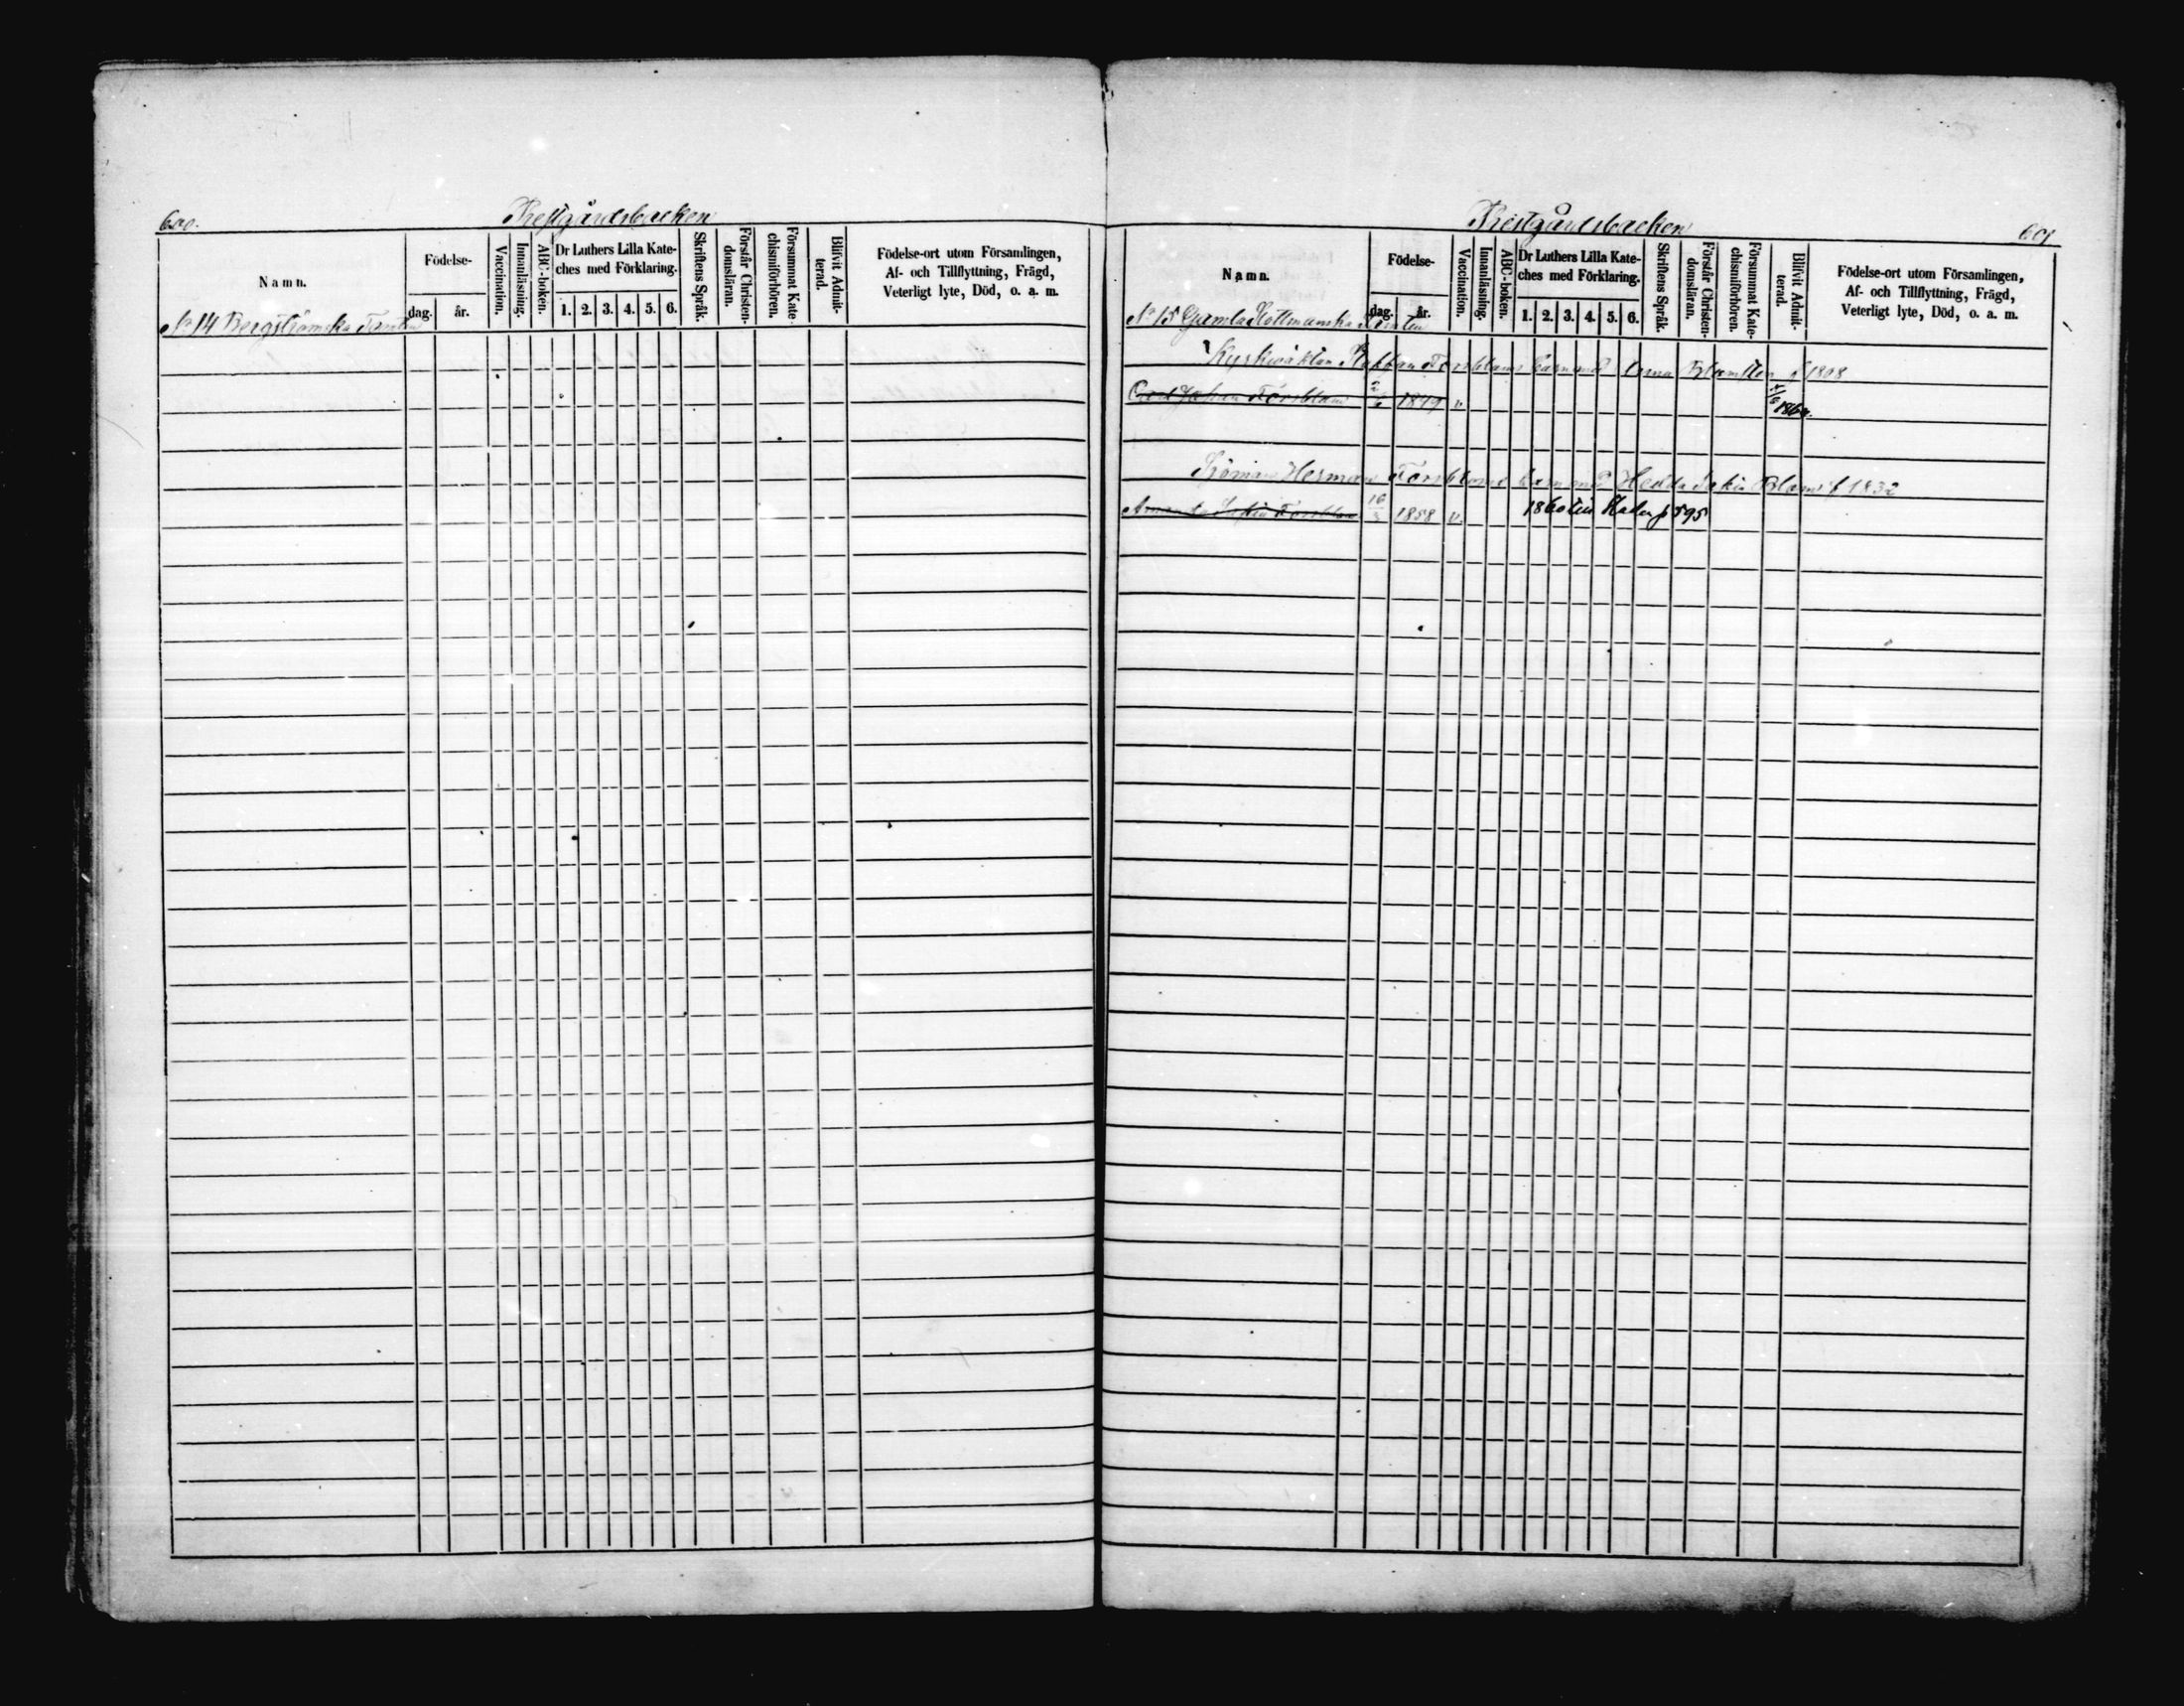 600.
Prestgårdsbacken
Namn.
Födelse-
dag.
år.
Vaccination.
Innanläsning.
ABC-boken.
Dr Luthers Lilla Kate-
ches med Förklaring.
1. 2. 3. 4. 5. 6.
Skriftens Språk.
Förstår Christen-
domsläran.
Försummat Kate-
chismiförhören.
Blifvit Admit-
terad.
Födelse-ort utom Församlingen,
Af- och Tillflyttning, Frägd,
Veterligt lyte, Död, o. a. m.
No 14 Bergströmska Tomten
Prestgårdsbacken
601
Namn.
Födelse-
dag.
år.
Vaccination.
Innanläsning.
ABC-boken.
Dr Luthers Lilla Kate-
ches med Förklaring.
1. 2. 3. 4. 5. 6.
Skriftens Språk.
Förstår Christen-
domsläran.
Försummat Kate-
chismiförhören.
Blifvit Admit-
terad.
Födelse-ort utom Församlingen,
Af- och Tillflyttning, Frägd,
Veterligt lyte, Död, o. a. m.
No 15 Gamla Tomten
Staffan Forsbloms barn med Anna f 1808
Carl Johan Forsblom 1849 v.
Herman Forsbloms barn med Hedda Blom f 1832
Amanda Sofia Forsblom 16 1858 v. 1860 till Staden p 595